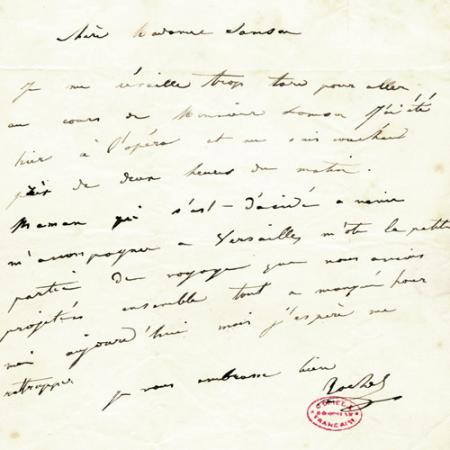 chère Madame Samson
Je me réveille trop tard pour aller
au cours de Monsieur Samson J'ai été
hier à l'opéra et me suis couchée
près de deux heures du matin.
Maman qui s'est décidé a venir
m'accompagner a Versailles m'ote la petite
partie de voyage que nous avions
projetés ensemble tout a manqué pour
moi aujourd'hui mais j'espère me
rattrapper
je vous embrasse bien
Rachel
COMÉDIE
FRANÇAISE